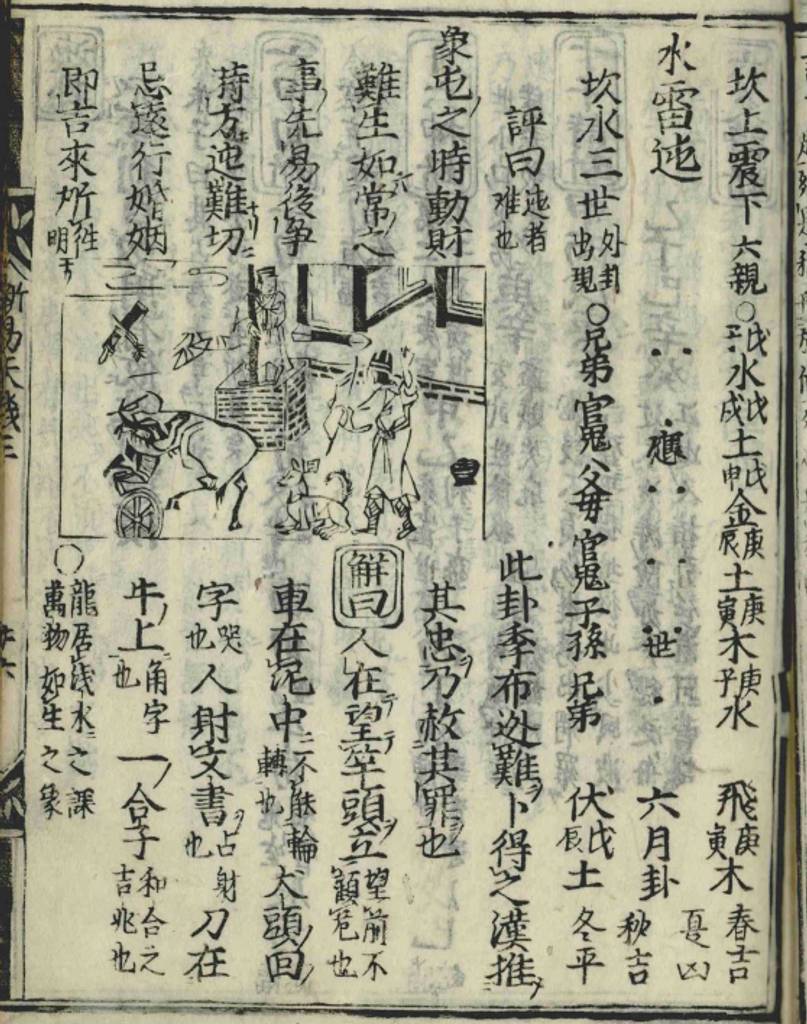 坎上震下六親○戊子水戊戌土戊申金庚辰土庚寅木庚子水 飛庚寅木 春吉
水雷迍 應 世 六月卦 夏凶 秋吉
坎水三世外卦出現○兄弟官鬼父母官鬼子孫兄弟 伏戊辰土 冬平
評曰迍者难也
此卦季布迯難ヲ卜得之漢推ヲ
象屯之時動財
其忠乃赦其罪也
難生如常之
解曰 人在望竿頭立ヲ望前不顧危也
事先易後争
車在泥中ニ不能輪轉也 犬頭回
持方迍難切
字哭也 人射文書ヲ占射也 刀在
忌遠行婚姻
牛上角字也 一合子和合之吉兆也
即吉來所往明
○龍居浅水之課萬物如生之象
新易天機三